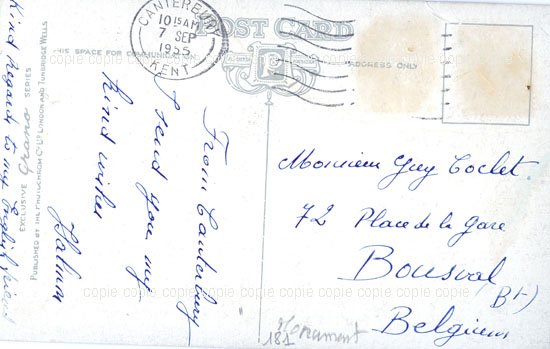 CANTERBURY
10 15 AM
7 SEP
1955
KENT
POST CARD
THIS SPACE FOR COMMUNICATION
ADDRESS ONLY
From Canterbury
I send you my
kind wishes
Kind Regards to my English friend
EXCLUSIVE Grano SERIES
PUBLISHED BY THE PHOTOCHROM CO. LTD. LONDON AND TUNBRIDGE WELLS
Monsieur Guy Cochet
72 Place de la Gare
Bousval
Belgium
181
Monument
copie copie copie copie copie copie copie copie copie copie copie
copie copie copie copie copie copie copie copie copie copie copie